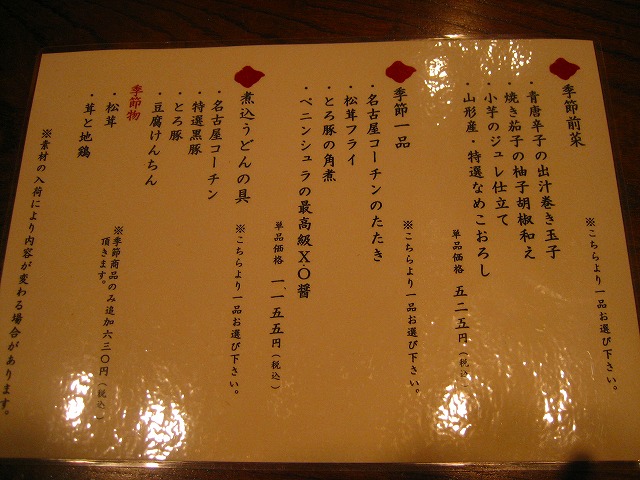 季節前菜
※こちらより一品お選び下さい。
・青唐辛子の出汁巻き玉子
・焼き茄子の柚子胡椒和え
・小芋のジュレ仕立て
・山形産・特選なめこおろし
単品価格 五二五円（税込）
季節一品
※こちらより一品お選び下さい。
・名古屋コーチンのたたき
・松茸フライ
・とろ豚の角煮
・ペニンシュラの最高級XO醤
単品価格 一、一五五円（税込）
煮込うどんの具
※こちらより一品お選び下さい。
・名古屋コーチン
・特選黒豚
・とろ豚
・豆腐けんちん
季節物
・松茸
・茸と地鶏
※季節商品のみ追加六三〇円（税込）
頂きます。
※素材の入荷により内容が変わる場合があります。